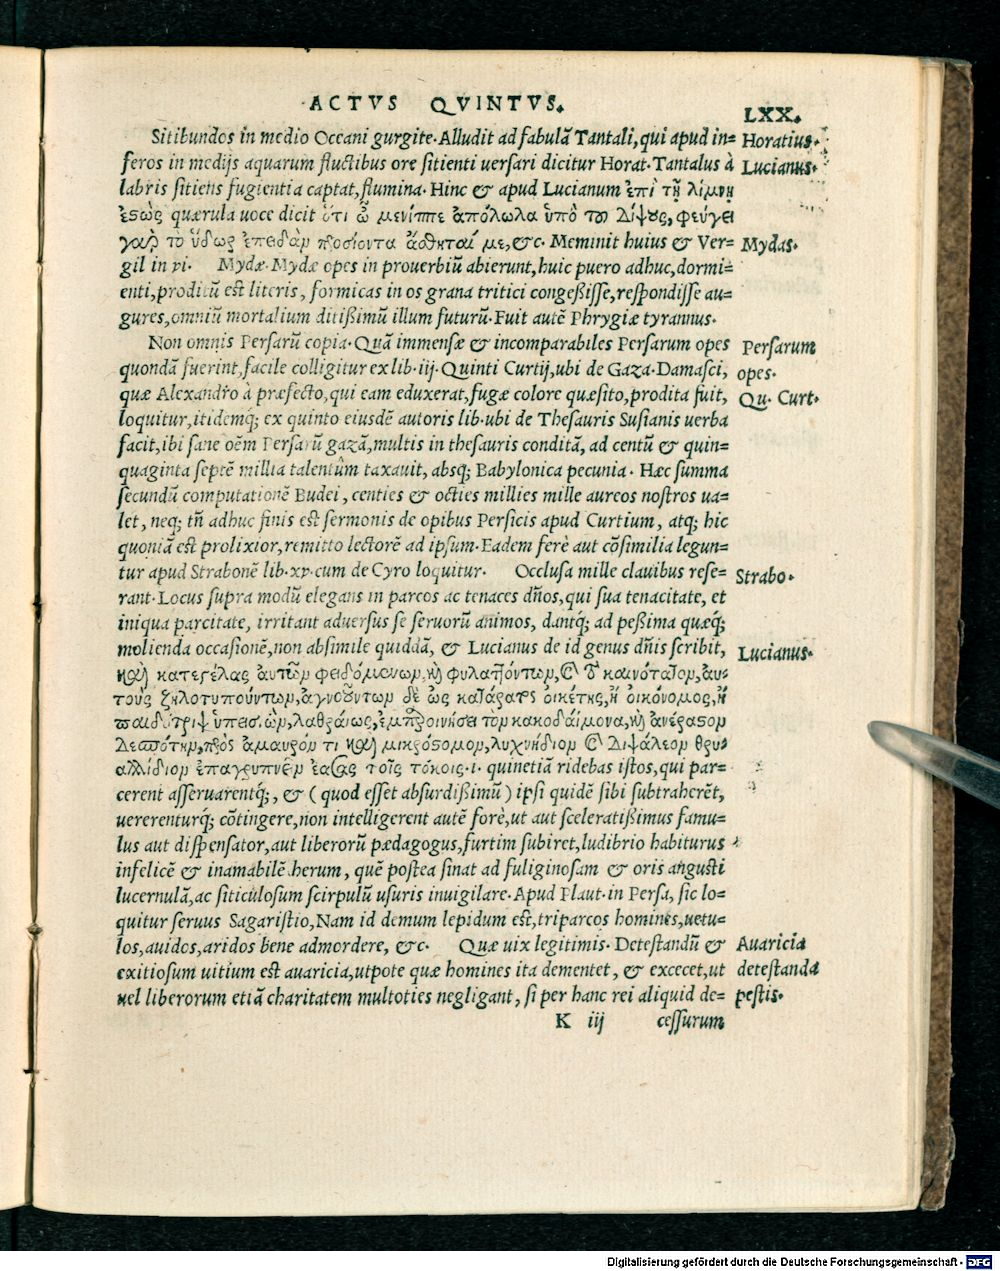 ACTVS QVINTVS.
LXX.
Sitibundos in medio Oceani gurgite. Alludit ad fabulã Tantali, qui apud in=
Horatius.
feros in medijs aquarum fluctibus ore sitienti uersari dicitur Horat. Tantalus à
Lucianus.
labris sitiens fugientia captat, flumina. Hinc & apud Lucianum ἐπὶ τῇ λίμνῃ
ἑστὼς quærula uoce dicit ὅτι ὦ μενίππε ἀπόλωλα ὑπὸ τοῦ δίψους, φεύγει
γὰρ τὸ ὕδωρ ἐπειδὰν προσιόντα αἴσθηταί με, &c. Meminit huius & Ver=
Mydas.
gil in vi. Mydæ. Mydæ opes in prouerbiũ abierunt, huic puero adhuc, dormi=
enti, proditũ est literis, formicas in os grana tritici congeßisse, respondisse au=
gures, omniũ mortalium ditißimũ illum futurũ. Fuit autẽ Phrygiæ tyrannus.
Non omnis Persarũ copia. Quã immensæ & incomparabiles Persarum opes
Persarum
quondã fuerint, facile colligitur ex lib. iij. Quinti Curtij, ubi de Gaza. Damasci,
opes.
quæ Alexandro à præfecto, qui eam eduxerat, fugæ colore quæsito, prodita fuit,
Qu. Curt.
loquitur, itidemq; ex quinto eiusdẽ autoris lib. ubi de Thesauris Susianis uerba
facit, ibi sane oẽm Persarũ gazã, multis in thesauris conditã, ad centũ & quin=
quaginta septẽ millia talentûm taxauit, absq; Babylonica pecunia. Hæc summa
secundũ computationẽ Budei, centies & octies millies mille aureos nostros ua=
let, neq; tñ adhuc finis est sermonis de opibus Persicis apud Curtium, atq; hic
quoniã est prolixior, remitto lectorẽ ad ipsum. Eadem ferè aut cõsimilia legun=
tur apud Strabonẽ lib. xv. cum de Cyro loquitur. Occlusa mille clauibus rese=
Strabo.
rant. Locus supra modũ elegans in parcos ac tenaces dños, qui sua tenacitate, et
iniqua parcitate, irritant aduersus se seruorũ animos, dantq; ad peßima quæq;
molienda occasionẽ, non absimile quiddã, & Lucianus de id genus dñis scribit,
Lucianus.
καὶ κατεγέλας αὐτῶν φειδομένων, καὶ φυλαττόντων, καὶ τὸ καινότατον, αὑ-
τοὺς ζηλοτυπούντων, ἀγνοούντων δὲ ὡς κατάρατος οἰκέτης, ἢ οἰκόνομος, ἢ
παιδότριψ ὑπεισιὼν, λαθραίως, ἐμπαροινήσει τὸν κακοδαίμονα, καὶ ἀνέραστον
δεσπότην, πρὸς ἀμαυρόν τι καὶ μικρόστομον, λυχνήδιον καὶ διψάλεον θρυ-
αλλίδιον ἐπαγρυπνεῖν ἐάσας τοῖς τόκοις. i. quinetiã ridebas istos, qui par=
cerent asseruarentq;, & (quod esset absurdißimũ) ipsi quidẽ sibi subtraherẽt,
uererenturq; cõtingere, non intelligerent autẽ forè, ut aut sceleratißimus famu=
lus aut dispensator, aut liberorũ pædagogus, furtim subiret, ludibrio habiturus
infelicẽ & inamabilẽ herum, quẽ postea sinat ad fuliginosam & oris angusti
lucernulã, ac siticulosum scirpulũ usuris inuigilare. Apud Plaut. in Persa, sic lo=
quitur seruus Sagaristio, Nam id demum lepidum est, triparcos homines, uetu=
los, auidos, aridos bene admordere, &c. Quæ uix legitimis. Detestandũ &
Auaricia
exitiosum uitium est auaricia, utpote quæ homines ita dementet, & excecet, ut
detestanda
uel liberorum etiã charitatem multoties negligant, si per hanc rei aliquid de=
pestis.
K iij cessurum
Digitalisierung gefördert durch die Deutsche Forschungsgemeinschaft - DFG